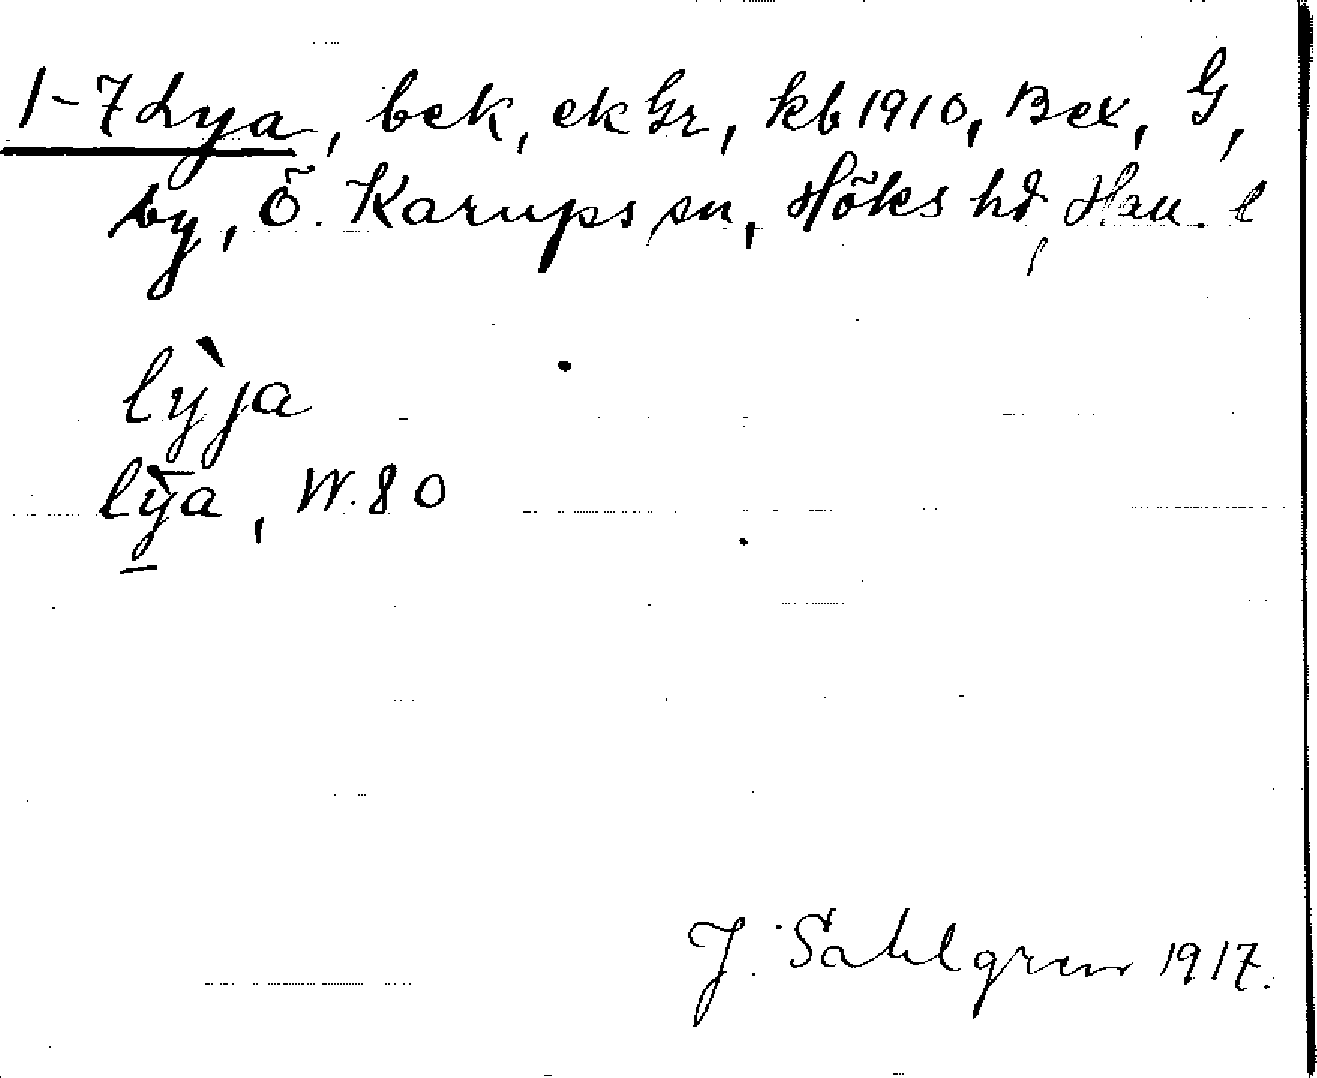 1-7 Lya, bek, ek Gr, kb 1910, Bex, G,
by, Ö. Karups sn, Höks hd, Hall. l
lỳja
lȳ̀a, W. 80
J. Sahlgren 1917.